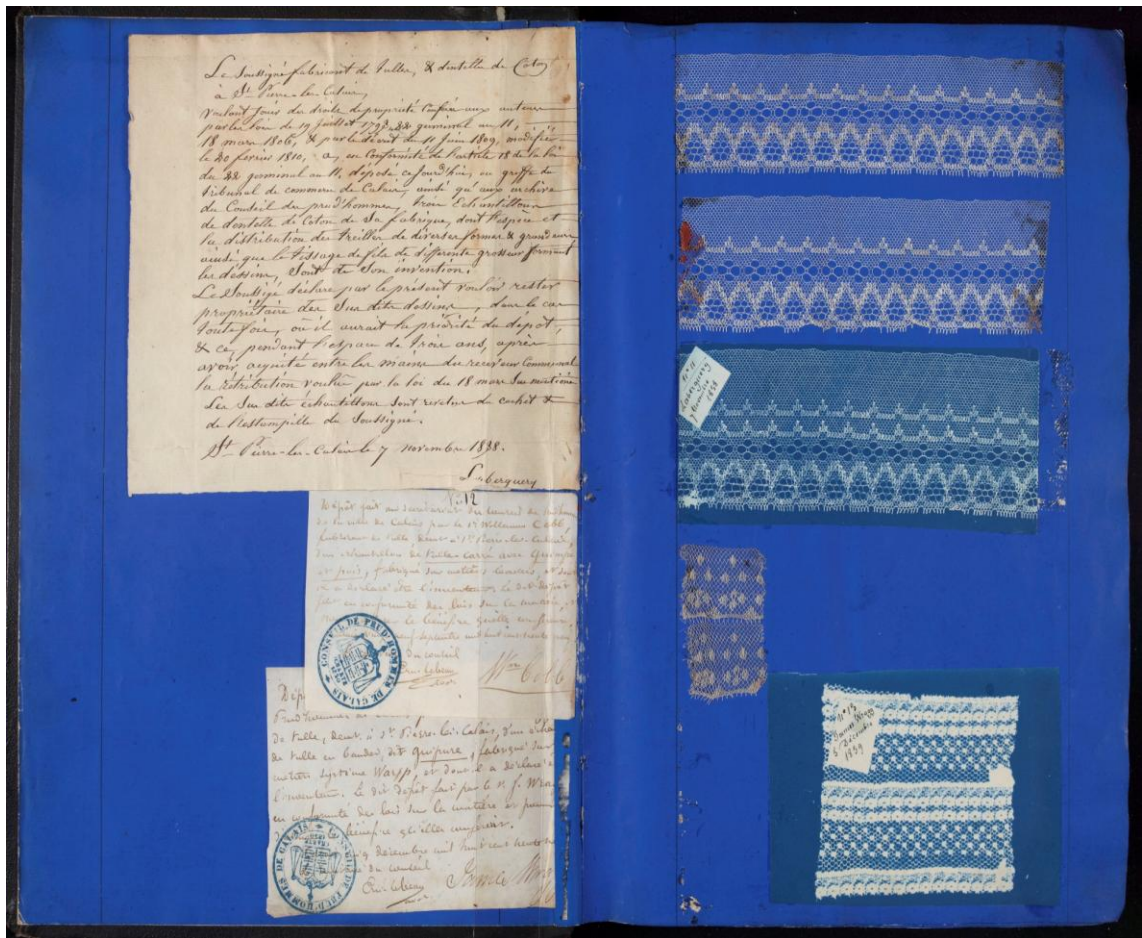 Le Soussigné fabricant de tulles, & dentelle de Coton
à St Pierre-les-Calais,
voulant jouir des droits de propriété Conférés aux auteurs
par les lois du 19 juillet 1793, 22 germinal an 11,
18 mars 1806, & par le décret du 11 juin 1809, modifié
le 20 février 1810, a, en Conformité de l'article 18 de la loi
du 22 germinal an 11, déposé cejourd'hui, au greffe du
tribunal de commerce de Calais, ainsi qu'aux archives
du Conseil des prud'hommes, trois Echantillons
de dentelle de Coton de Sa fabrique, dont l'espèce et
la distribution des treilles de diverses formes & grandeurs
ainsi que le tissage de fils de différente grosseur formant
les dessins, Sont de Son invention.
Le Soussigné déclare par le présent vouloir rester
propriétaire des Sus dits dessins dans le cas
toutefois, où il aurait la priorité du dépôt,
& ce, pendant l'espace de trois ans, après
avoir acquitté entre les mains du receveur Communal
la rétribution voulue par la loi du 18 mars Sus mentionné
Les Sus dits échantillons sont revêtus du cachet &
de l'estampille du Soussigné.
St Pierre-les-Calais le 7 novembre 1838.
Laberquery
N° 12
Dépôt fait au secrétariat du Conseil de Prud'hommes
de la ville de Calais par le Sr William Cobb,
fabricant de tulle, demt à St Pierre-les-Calais,
d'un échantillon de tulle carré avec guimpe
et pois, fabriqué sur métiers leavers, et dont
il a déclaré être l'inventeur. Le dit dépôt
fait en conformité des lois sur la matière, et
le bénéfice qu'elles confèrent
neuf septembre mil huit cent trente neuf
du conseil
Wm Cobb
CONSEIL DE PRUD'HOMMES DE CALAIS
Dép
Prud'hommes de
de tulle, demt à St Pierre-les-Calais, d'un échan
de tulle en bandes, dit guipure, fabriqué sur
métier système Warpp, et dont il a déclaré
l'inventeur. Le dit dépôt fait par le Sr J. Wra
en conformité des lois sur la matière et pour
bénéfice qu'elles confèrent.
décembre mil huit cent trente n
du conseil
CONSEIL DE PRUD'HOMMES DE CALAIS
N° 11
Laberquery
7 Novembre
1838
N° 13
James Wragg
5 Décembre
1839